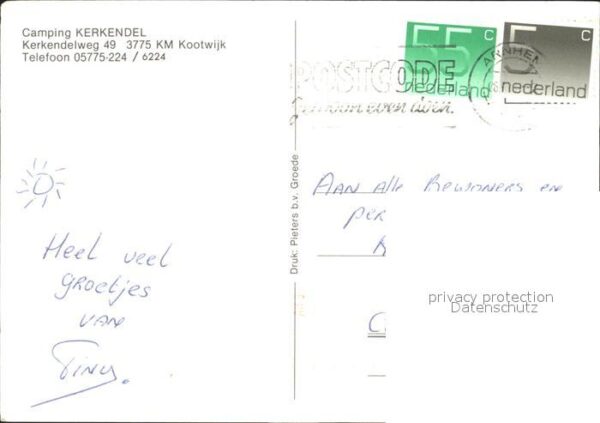 Camping KERKENDEL
Kerkendelweg 49 3775 KM Kootwijk
Telefoon 05775-224 / 6224
55 c
nederland
5 c
nederland
ARNHEM
POSTCODE
gewoon even doen.
Druk: Pieters b.v. Groede
Aan Alle Bewoners en
per
Heel veel
groetjes
van
Tiny.
privacy protection
Datenschutz